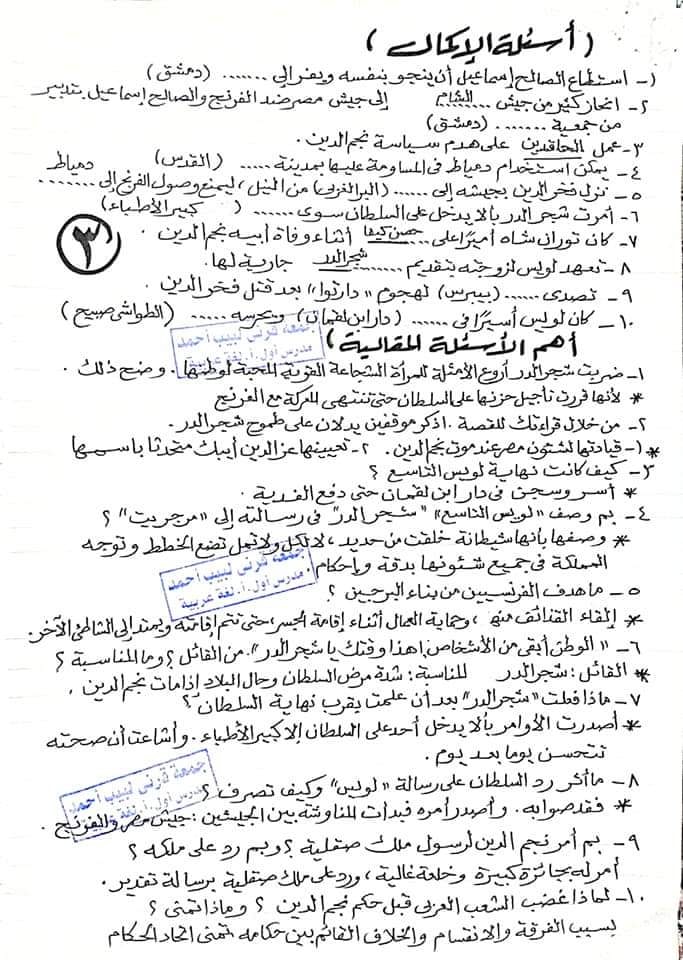 ( أسئلة الإكمال )
١- استطاع الصالح إسماعيل أن ينجو بنفسه ويفر إلى ....... (دمشق)
٢- انحاز كثير من جيش الشام ....... إلى جيش مصر ضد الفرنج والصالح إسماعيل بتدبير
من جمعية ....... (دمشق)
٣- عمل الحاقدين على هدم سياسة نجم الدين.
٤- يمكن استخدام دمياط فى المساومة عليها بمدينة ..... (القدس)
٥- نزل فخر الدين بجيشه إلى ..... (البر الغربى) من النيل، ليمنع وصول الفرنج إلى ....... دمياط
٦- أمرت شجر الدر بألا يدخل على السلطان سوى ..... ( كبير الأطباء)
٧- كان توران شاه أميرًا على حصن كيفا أثناء وفاة أبيه نجم الدين.
٨- تعهد لويس لزوجته بتقديم شجر الدر جارية لها.
(٣)
٩- تصدى ...... (بيبرس) لهجوم "دارتوا" بعد قتل فخر الدين.
١٠- كان لويس أسيرًا فى ...... (دار ابن لقمان) ويحرسه ..... (الطواشى صبيح)
جمعة قرنى لبيب أحمد
مدرس أول.أ. لغة عربية
أهم الأسئلة المقالية )
١- ضربت شجر الدر أروع الأمثلة للمرأة الشجاعة القوية المحبة لوطنها. وضح ذلك.
* لأنها قررت تأجيل حزنها على السلطان حتى تنتهى المعركة مع الفرنج
٢- من خلال قراءتك للقصة. اذكر موقفين يدلان على طموح شجر الدر.
* ١- قيادتها لشئون مصر عند موت نجم الدين. ٢- تعيينها عز الدين أيبك متحدثا باسمها
٣- كيف كانت نهاية لويس التاسع ؟
* أسر وسجن فى دار ابن لقمان حتى دفع الفدية.
٤- بم وصف "لويس التاسع" "شجر الدر" فى رسالته إلى "مرجريت" ؟
* وصفها بأنها شيطانة خلقت من حديد، لا تكل ولا تمل تضع الخطط وتوجه
المملكة فى جميع شئونها بدقة وإحكام.
جمعة قرنى لبيب أحمد
مدرس أول.أ. لغة عربية
٥- ما هدف الفرنسيين من بناء البرجين ؟
* إلقاء القذائف منها، وحماية العمال أثناء إقامة الجسر، حتى تتم إقامته ويمتد إلى الشاطئ الآخر.
٦- "الوطن أبقى من الأشخاص، هذا وقتك يا شجر الدر". من القائل ؟ وما المناسبة ؟
* القائل : شجر الدر المناسبة : شدة مرض السلطان وحال البلاد إذا مات نجم الدين.
٧- ماذا فعلت "شجر الدر" بعد أن علمت بقرب نهاية السلطان ؟
* أصدرت الأوامر بألا يدخل أحد على السلطان إلا كبير الأطباء. وأشاعت أن صحته
تتحسن يوما بعد يوم.
جمعة قرنى لبيب أحمد
مدرس أول.أ. لغة عربية
٨- ما أثر رد السلطان على رسالة "لويس" وكيف تصرف ؟
* فقد صوابه. وأصدر أمره فبدأت المناوشة بين الجيشين : جيش مصر والفرنج.
٩- بم أمر نجم الدين لرسول ملك صقلية ؟ وبم رد على ملكه ؟
أمر له بجائزة كبيرة وخلعة غالية، ورد على ملك صقلية برسالة تقدير.
١٠- لماذا غضب الشعب العربى قبل حكم نجم الدين ؟ وماذا تمنى ؟
بسبب الفرقة والانقسام والخلاف القائم بين حكامه. تمنى اتحاد الحكام